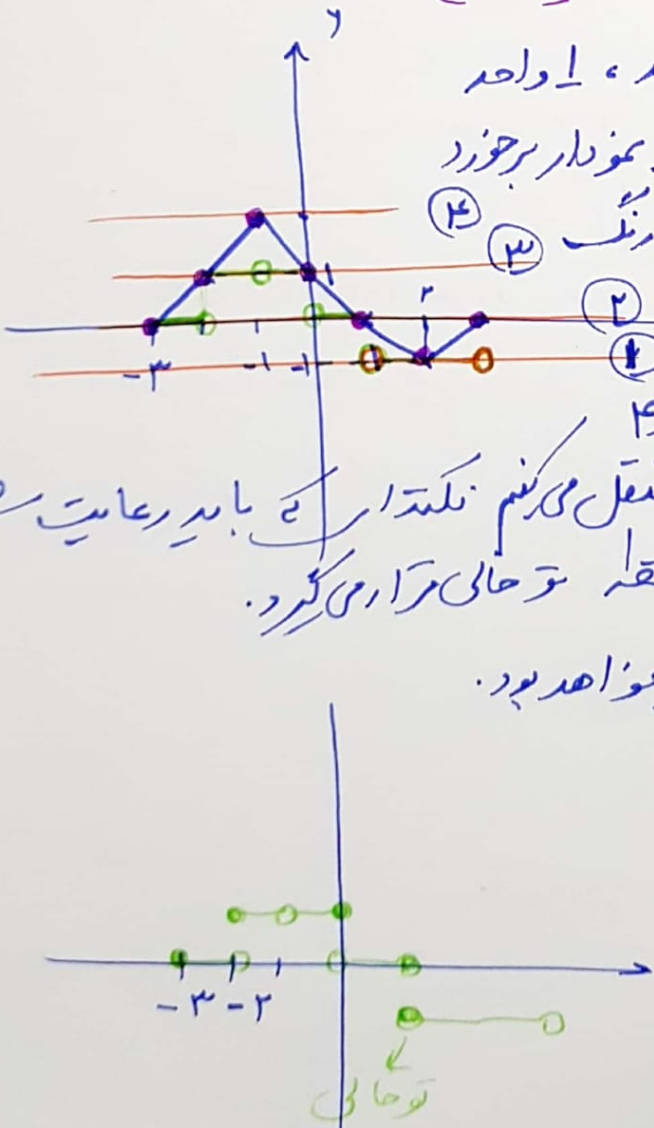 y
، ۱ واحد
نمودار برخورد
رنگ
۴
۳
۲
۱
۱
۲
-۳
-۱
-۱
۴
منتقل می‌کنم نکته‌ای که باید رعایت
تو خالی قرار می‌گیرد.
خواهد بود.
-۳ -۲
تو خالی